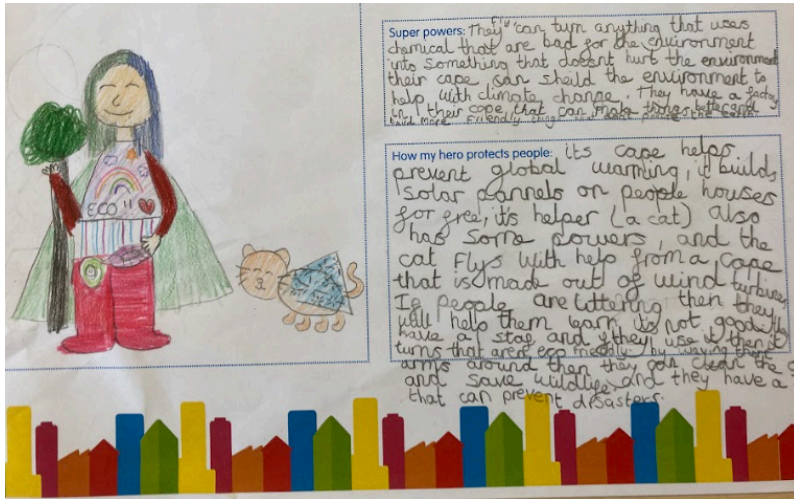 ECO !!
Super powers: They can turn anything that uses
chemical that are bad for the environment
into something that doesnt hurt the environment
their cape can sheild the environment to
help with climate change. They have a factory
in their cape that can make things better and
build more Friendly things
How my hero protects people: its cape helps
prevent global warming, it builds
Solar pannels on people houses
for free, it's helper (a cat) also
has some powers, and the
cat Flys with help from a cape
that is made out of wind turbines
If people are littering then they
will help them learn its not good. they
have a staf and if they use it then it
turns that arent eco friendly by waving their
arms around then they can clean the
and save wildlife, and they have a
that can prevent disasters.